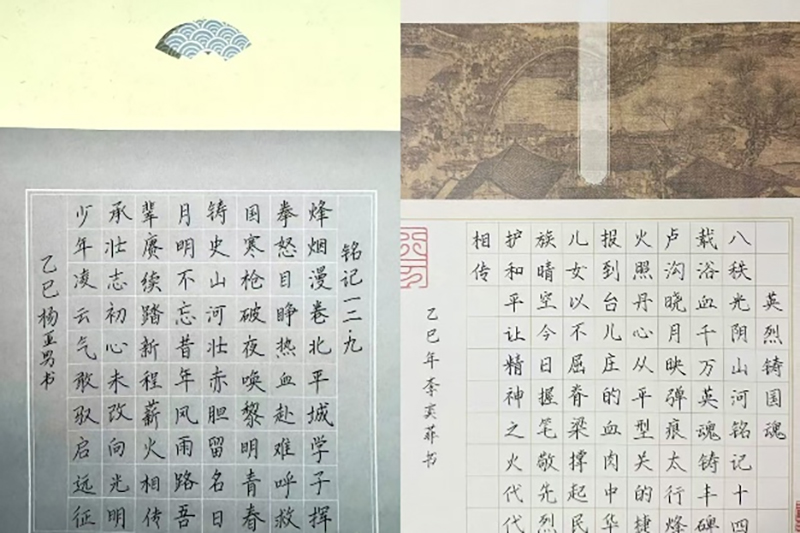 铭记一二·九
烽烟漫卷北平城学子挥
拳怒目睁热血赴难呼救
国寒枪破夜唤黎明青春
铸史山河壮赤胆留名日
月明不忘昔年风雨路吾
辈赓续踏新程薪火相传
承壮志初心未改向光明
少年凌云气敢驭启远征
乙巳杨亚男书
英烈铸国魂
八秩光阴山河铭记十四
载浴血千万英魂铸丰碑
卢沟晓月映弹痕太行烽
火照丹心从平型关的捷
报到台儿庄的血肉中华
儿女以不屈脊梁撑起民
族晴空今日握笔敬先烈
护和平让精神之火代代
相传
乙巳年李书